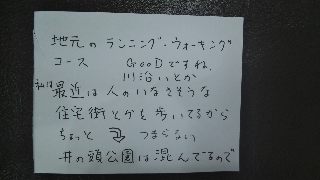 地元のランニング・ウォーキング
コース GooDですね。
川沿いとか
私は最近は人のいなさそうな
住宅街とかを歩いてるから
ちょっと つまらない
井の頭公園は混んでるので